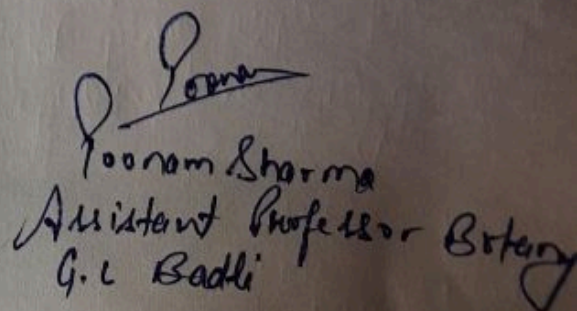 Poonam
Poonam Sharma
Assistant Professor Botany
G.C Badli